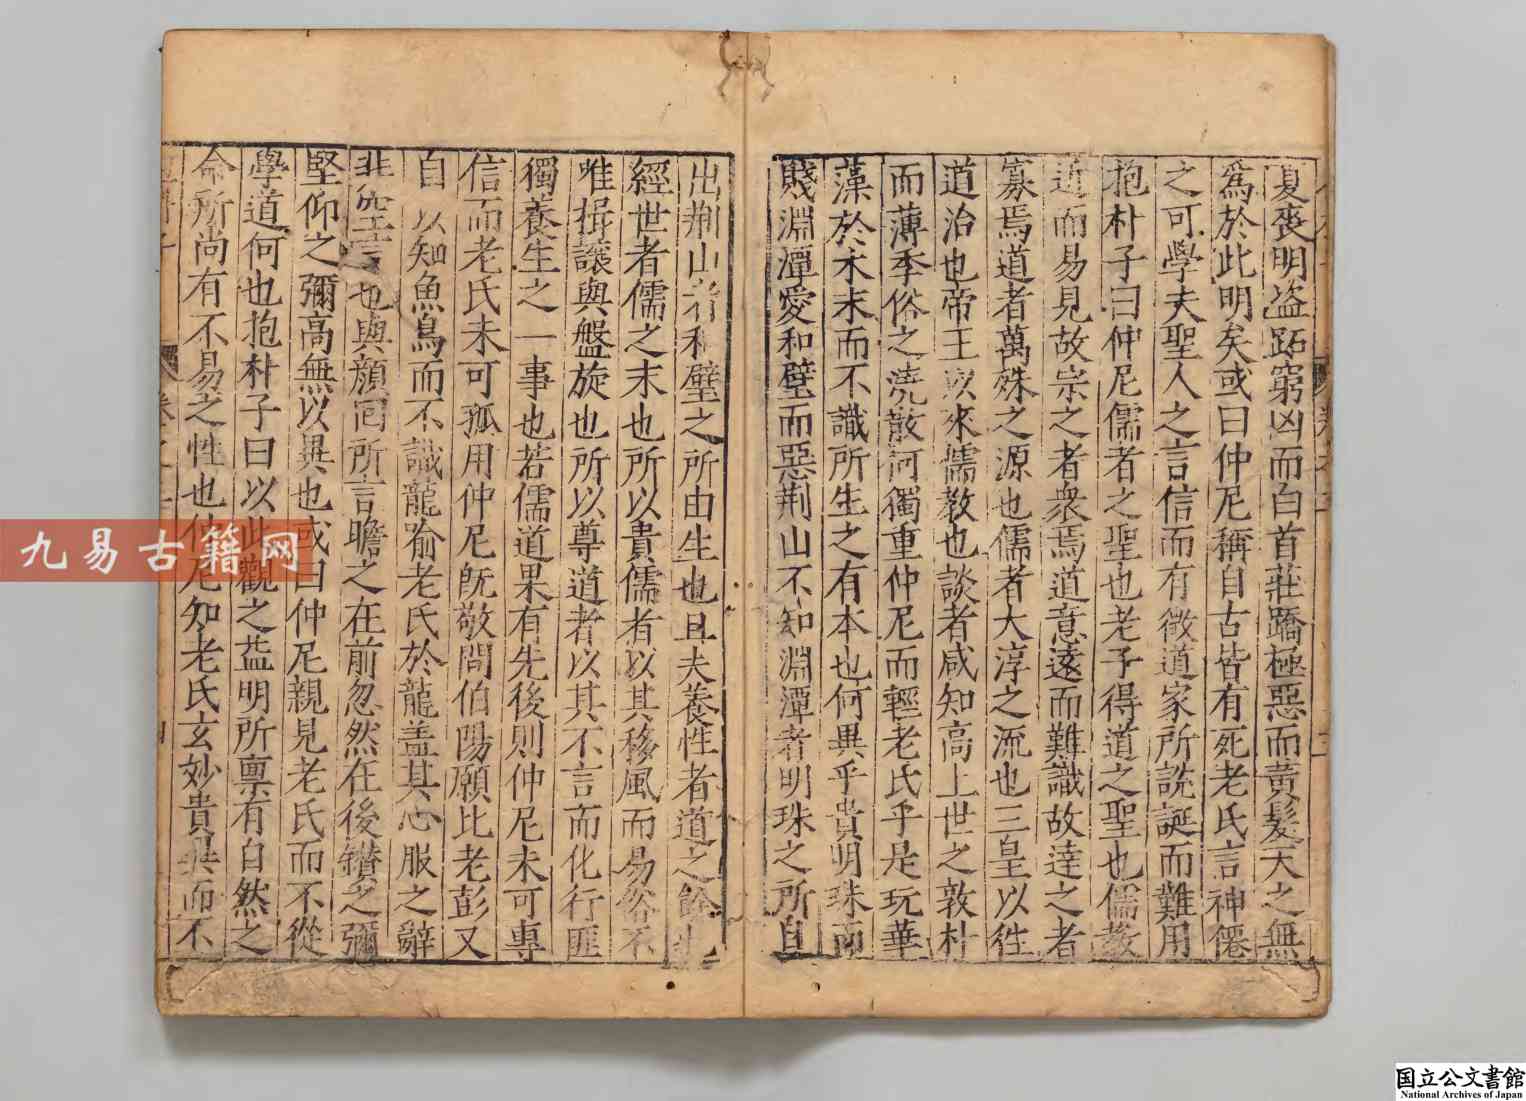 夏喪明盜跖窮凶而白首莊蹻極惡而黃髮天之無
爲於此明矣或曰仲尼稱自古皆有死老氏言神僊
之可學夫聖人之言信而有徵道家所說誕而難用
抱朴子曰仲尼儒者之聖也老子得道之聖也儒教
近而易見故宗之者衆焉道意遠而難識故達之者
寡焉道者萬殊之源也儒者大淳之流也三皇以往
道治也帝王以來儒教也談者咸知高上世之敦朴
而薄季俗之澆散何獨重仲尼而輕老氏乎是玩華
藻於木末而不識所生之有本也何異乎貴明珠而
賤淵潭愛和璧而惡荆山不知淵潭者明珠之所自
出荆山者和璧之所由生也且夫養性者道之餘也
經世者儒之末也所以貴儒者以其移風而易俗不
唯揖讓與盤旋也所以尊道者以其不言而化行匪
獨養生之一事也若儒道果有先後則仲尼未可專
信而老氏未可孤用仲尼旣敬問伯陽願比老彭又
自以知魚鳥而不識龍喻老氏於龍盖其心服之辭
非空言也與顏回所言瞻之在前忽然在後鑚之彌
堅仰之彌高無以異也或曰仲尼親見老氏而不從
學道何也抱朴子曰以此觀之益明所禀有自然之
命所尚有不易之性也仲尼知老氏玄妙貴異而不
九易古籍网
国立公文書館
National Archives of Japan